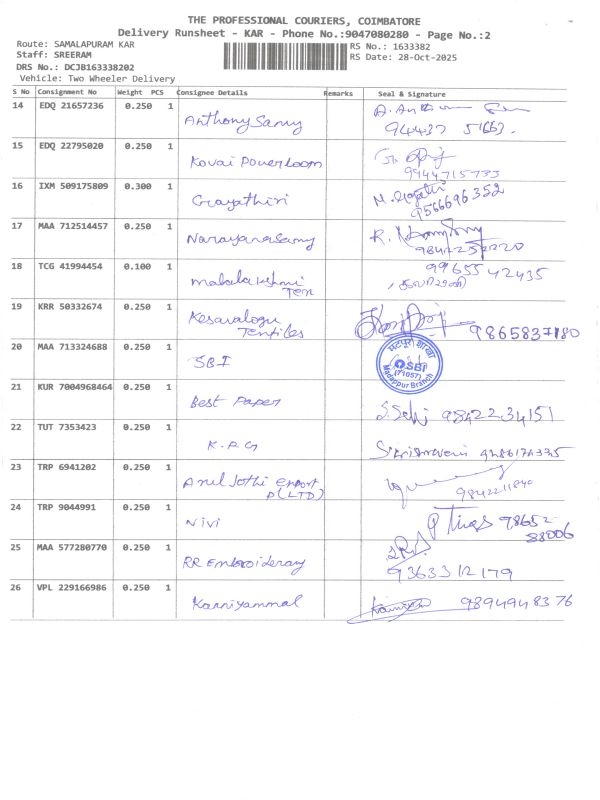 THE PROFESSIONAL COURIERS, COIMBATORE
Delivery Runsheet - KAR - Phone No.:9047080280 - Page No.:2
Route: SAMALAPURAM KAR RS No.: 1633382
Staff: SREERAM RS Date: 28-Oct-2025
DRS No.: DCJB163338202
Vehicle: Two Wheeler Delivery
S No Consignment No Weight PCS Consignee Details Remarks Seal & Signature
14 EDQ 21657236 0.250 1 Anthony Samy
94437 51663.
15 EDQ 22795020 0.250 1 Kovai Powerloom
9944715733
16 IXM 509175809 0.300 1 Gayathiri
9566696352
17 MAA 712514457 0.250 1 Narayanasamy
18 TCG 41994454 0.100 1 Mahalakshmi Tex 99655 42435
19 KRR 50332674 0.250 1 Kesavalogu Textiles 9865837180
20 MAA 713324688 0.250 1 SBI
SBI
(71057)
Madappur Branch
21 KUR 7004968464 0.250 1 Best Paper 9842234151
22 TUT 7353423 0.250 1 K.P.G
23 TRP 6941202 0.250 1 Arul Jothi Export P(LTD)
9842211840
24 TRP 9044991 0.250 1 Nivi 98652
88006
25 MAA 577280770 0.250 1 RR Embroiderary
9363312179
26 VPL 229166986 0.250 1 Kanniyammal 9894948376